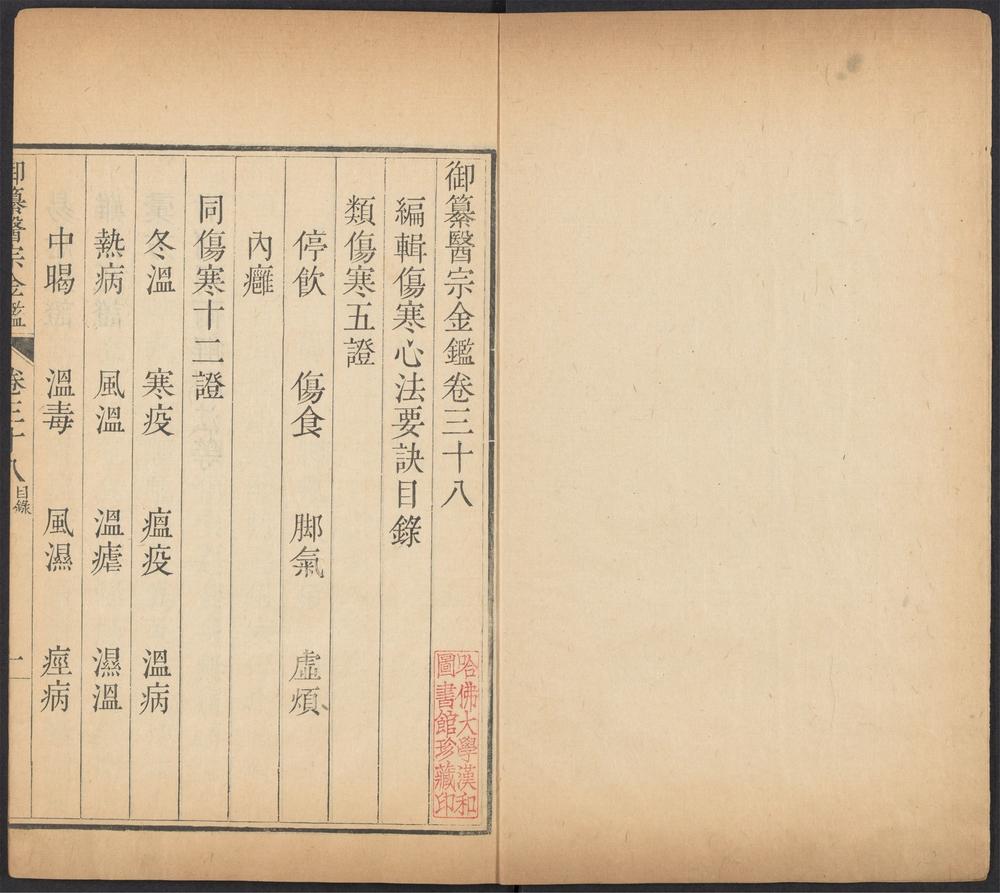 御纂醫宗金鑑卷三十八
編輯傷寒心法要訣目錄
類傷寒五證
停飲 傷食 脚氣 虛煩
內癰
同傷寒十二證
冬溫 寒疫 瘟疫 溫病
熱病 風溫 溫瘧 濕溫
中暍 溫毒 風濕 痙病
御纂醫宗金鑑 卷三十八 目錄 一
哈佛大學漢和
圖書館珍藏印